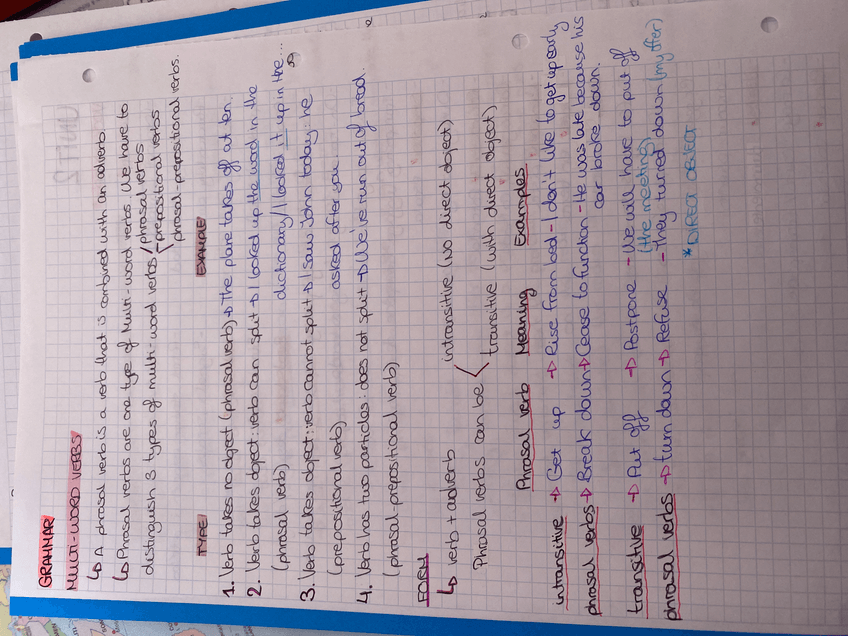 GRAMMAR
MULTI-WORD VERBS
↳ A phrasal verb is a verb that is combined with an adverb.
↳ Phrasal verbs are one type of Multi-word verbs. We have to
distinguish 3 types of multi-word verbs phrasal verbs
prepositional verbs
phrasal-prepositional verbs.
TYPE EXAMPLE
1. Verb takes no object (phrasal verb) → The plane takes off at ten.
2. Verb takes object: verb can split → I looked up the word in the
(phrasal verb) dictionary / I looked it up in the...
3. Verb takes object: verb cannot split → I saw John today: he
(prepositional verb) asked after you
4. Verb has two particles: does not split → We've run out of bread.
(phrasal-prepositional verb)
FORM
↳ verb + adverb
Phrasal verbs can be intransitive (no direct object)
transitive (with direct object)
Phrasal verb Meaning Examples
intransitive → Get up → Rise from bed - I don't like to get up early
phrasal verbs → Break down → Cease to function - He was late because his
car broke down.
transitive → Put off → Postpone - We will have to put off
(the meeting)
phrasal verbs → Turn down → Refuse - They turned down (my offer)
*DIRECT OBJECT